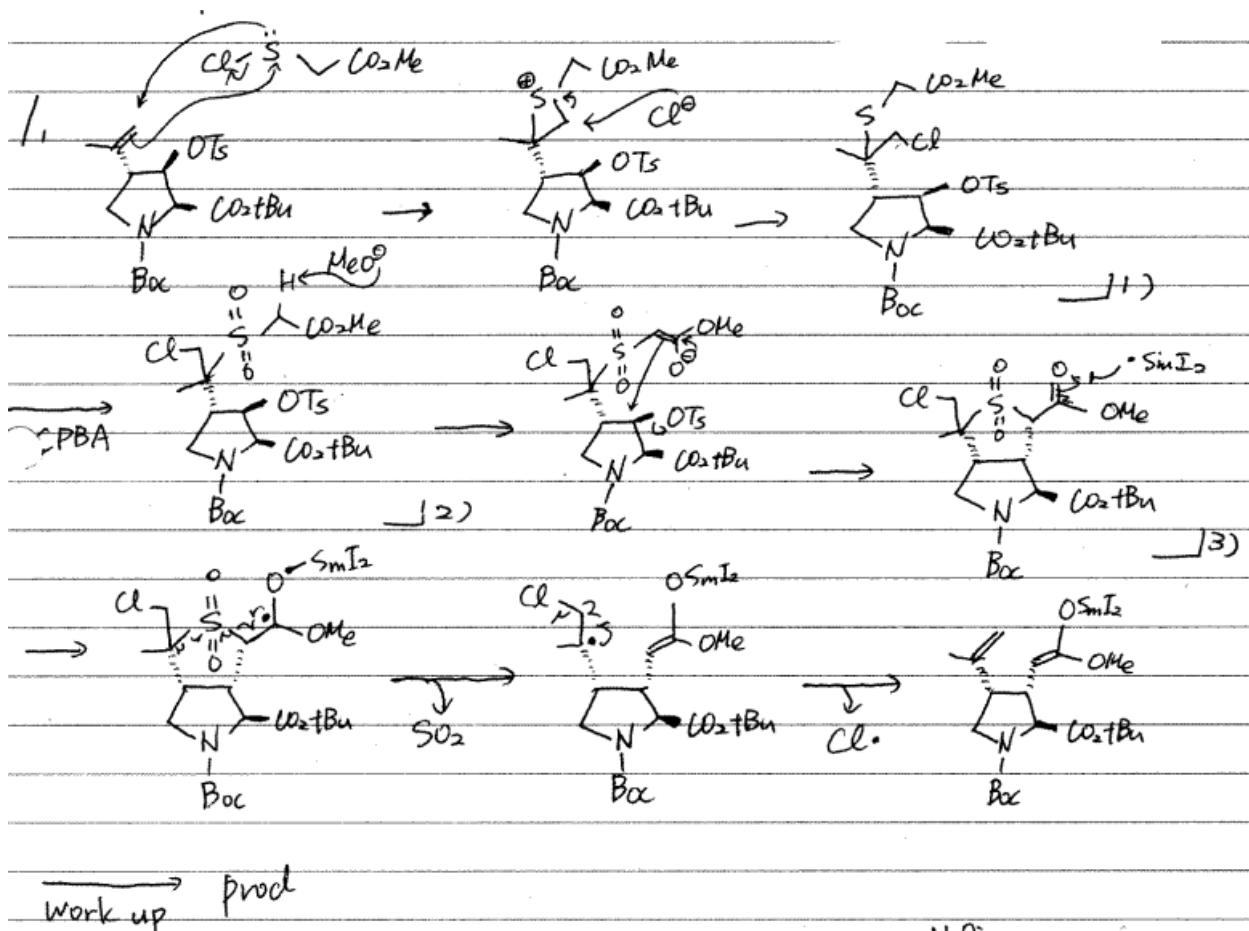 Cl S̈ CO₂Me
1.
OTs
CO₂tBu
N
Boc
⊕ S CO₂Me
Cl⊖
OTs
CO₂tBu
N
Boc
CO₂Me
S
Cl
OTs
CO₂tBu
N
Boc
1)
PBA
O
H MeO⊖
S CO₂Me
Cl O
OTs
CO₂tBu
N
Boc
2)
O
S OMe
Cl O⊖
O
OTs
CO₂tBu
N
Boc
O O •SmI₂
Cl S OMe
O
CO₂tBu
N
Boc
3)
O O SmI₂
Cl S • OMe
O
CO₂tBu
N
Boc
SO₂
OSmI₂
Cl 2
• OMe
CO₂tBu
N
Boc
Cl•
OSmI₂
OMe
CO₂tBu
N
Boc
work up prod